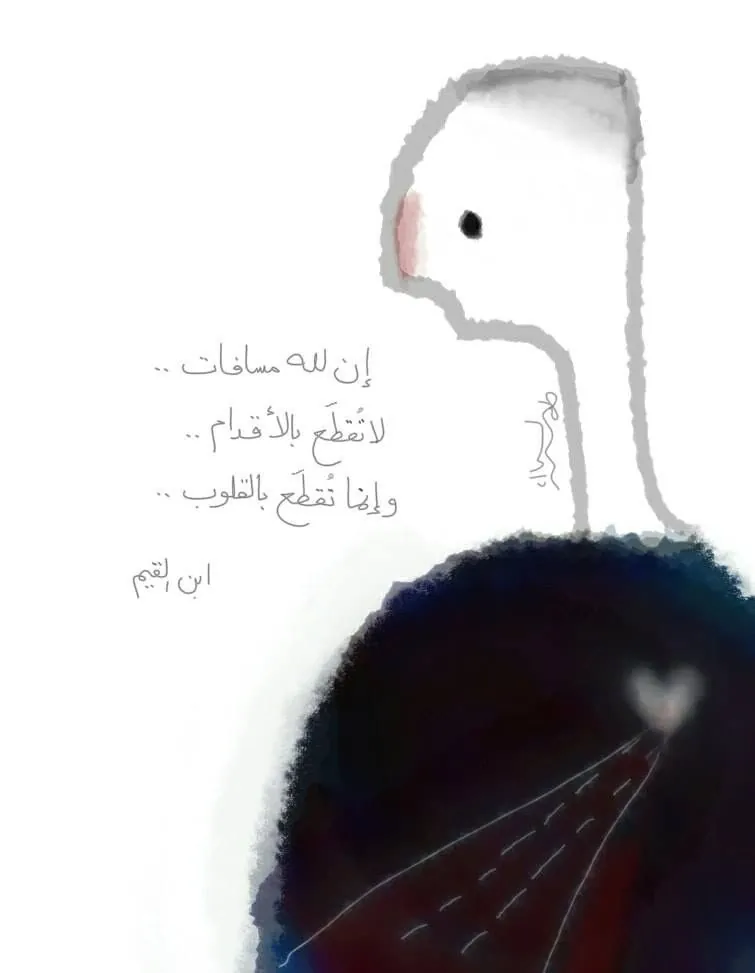 إن لله مسافات ..
لا تُقطَع بالأقدام ..
وإنما تُقطَع بالقلوب ..
ابن القيم